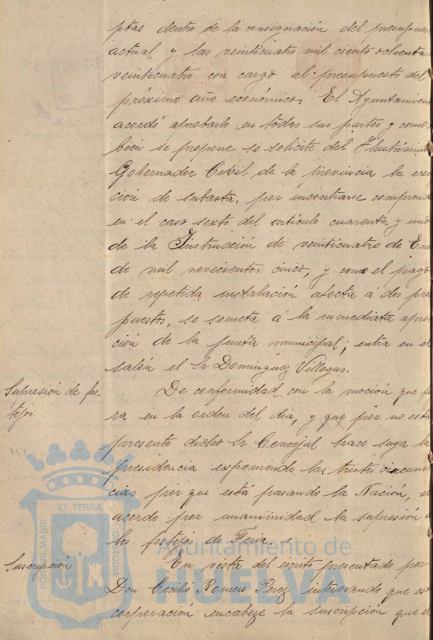 ptas dentro de la consignación del presupues
actual y las veinticuatro mil ciento ochenta
veinticuatro con cargo al presupuesto del
próximo año económico. El Ayuntamien
acordó aprobarlo en todas sus partes y como
bien se propone se solicite del Ilustrísimo
Gobernador Civil de la provincia la ex
ción de subasta, por encontrarse comprend
en el caso sexto del artículo cuarenta y uno
de la Instrucción de veinticuatro de Ene
de mil novecientos cinco, y como el pago
de repetida instalación afecta á dos pre
puestos, se someta á la inmediata apro
ción de la junta municipal; entra en el
salón el Sr Domínguez Villegas.
Supresión de fes
tejos
De conformidad con la moción que fi
ra en la orden del día, y que por no esta
presente dicho Sr Concejal hace suya la
presidencia exponiendo las tristes circuns
cias por que está pasando la Nación, se
acordó por unanimidad la supresión d
los festejos de Feria.
Suscripción
En vista del escrito presentado por
Don Cecilio Romero Perez interesando que es
corporación encabece la suscripción que
Ayuntamiento de
HUELVA
ET TERRA